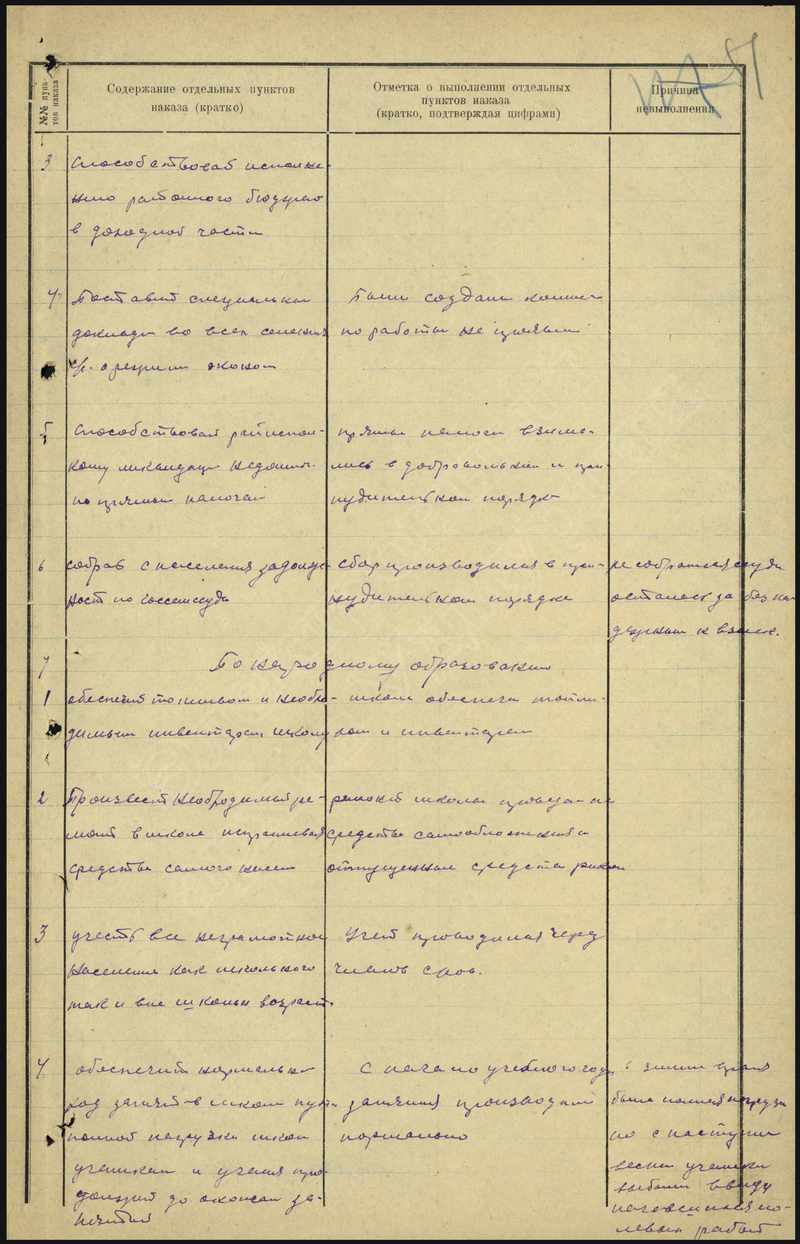 №№ пунк-
тов наказа
Содержание отдельных пунктов
наказа (кратко)
Отметка о выполнении отдельных
пунктов наказа
(кратко, подтверждая цифрами)
Причина
невыполнения
3
Способствоват исполне-
нию районного бюджета
в доходной части
4
Поставит специальн
доклады во всех
о режиме эконом
Были создан комис
по работы не
5
Способствовал райиспол-
кому ликвидац недоим
по прямым налогам
прямые налоги взима-
лись в добровольном и при-
нудительном порядке
6
собрав с населения задолже-
ност по госсемссуде
Сбор производился в при-
нудительном порядке
не собранная ссуда
осталась за без на-
дежным к взыск.
7
По народному образованию
1
обеспечит топливом и необхо-
димым инвентарем школу
школ обеспечен топли-
вом и инвентарем
2
Произвест необходимый ре-
монт в школе изыскивая
средства самого насел
ремонт школы проведен на
средства самообложения и
отпущенные средства
3
учесть все неграмотное
население как школьного
так и вне школьн возраст.
Учет проводился через
членов с/сов.
4
обеспечит нормальн
ход занятий в школ путем
полной нагрузки школ
ученикам и учения про-
должит до окончан за-
нятий
С начало учебного года
занятия производил
нормально
в зимнее время
была полная нагрузка
но с наступл
весны ученики
выбыли ввиду
начавшихся по-
левых работ